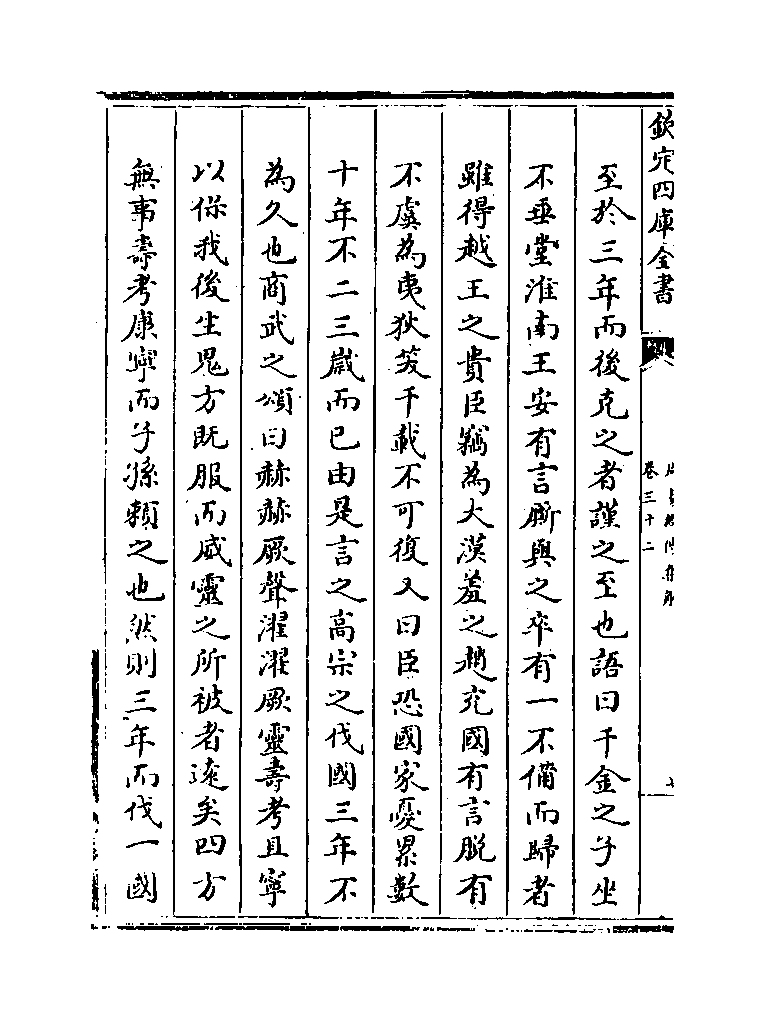 欽定四庫全書
卷三十二
至於三年而後克之者謹之至也語曰千金之子坐
不垂堂淮南王安有言廝輿之卒有一不備而歸者
雖得越王之貴臣竊為大漢羞之趙充國有言脫有
不虞為夷狄笑千載不可復又曰臣恐國家憂累數
十年不二三歲而已由是言之高宗之伐國三年不
為久也商武之頌曰赫赫厥聲濯濯厥靈壽考且寧
以保我後生鬼方既服而威靈之所被者遠矣四方
無事壽考康寧而子孫賴之也然則三年而伐一國